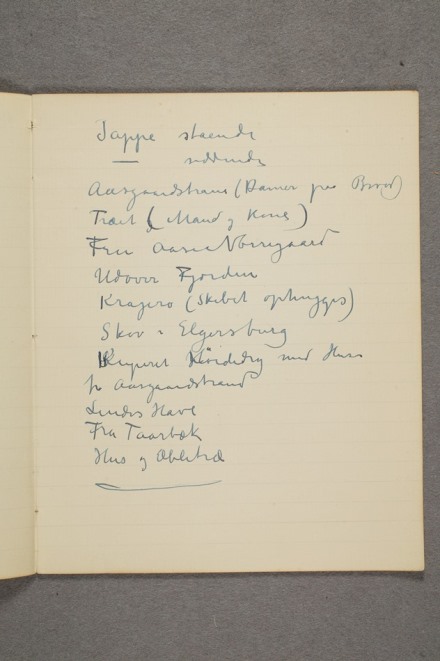 Jappe staaende
— siddende
Aasgaardstrand (Damer paa Broen)
Træet (Mand og Kone)
Fru Aase Nørregaard
Udover Fjorden
Kragerø (Skibet ophugges)
Skov i Elgersburg
med Hus
fr Aasgaardstrand
Lindes Have
Fra Taarbæk
Hus og Æbletræ